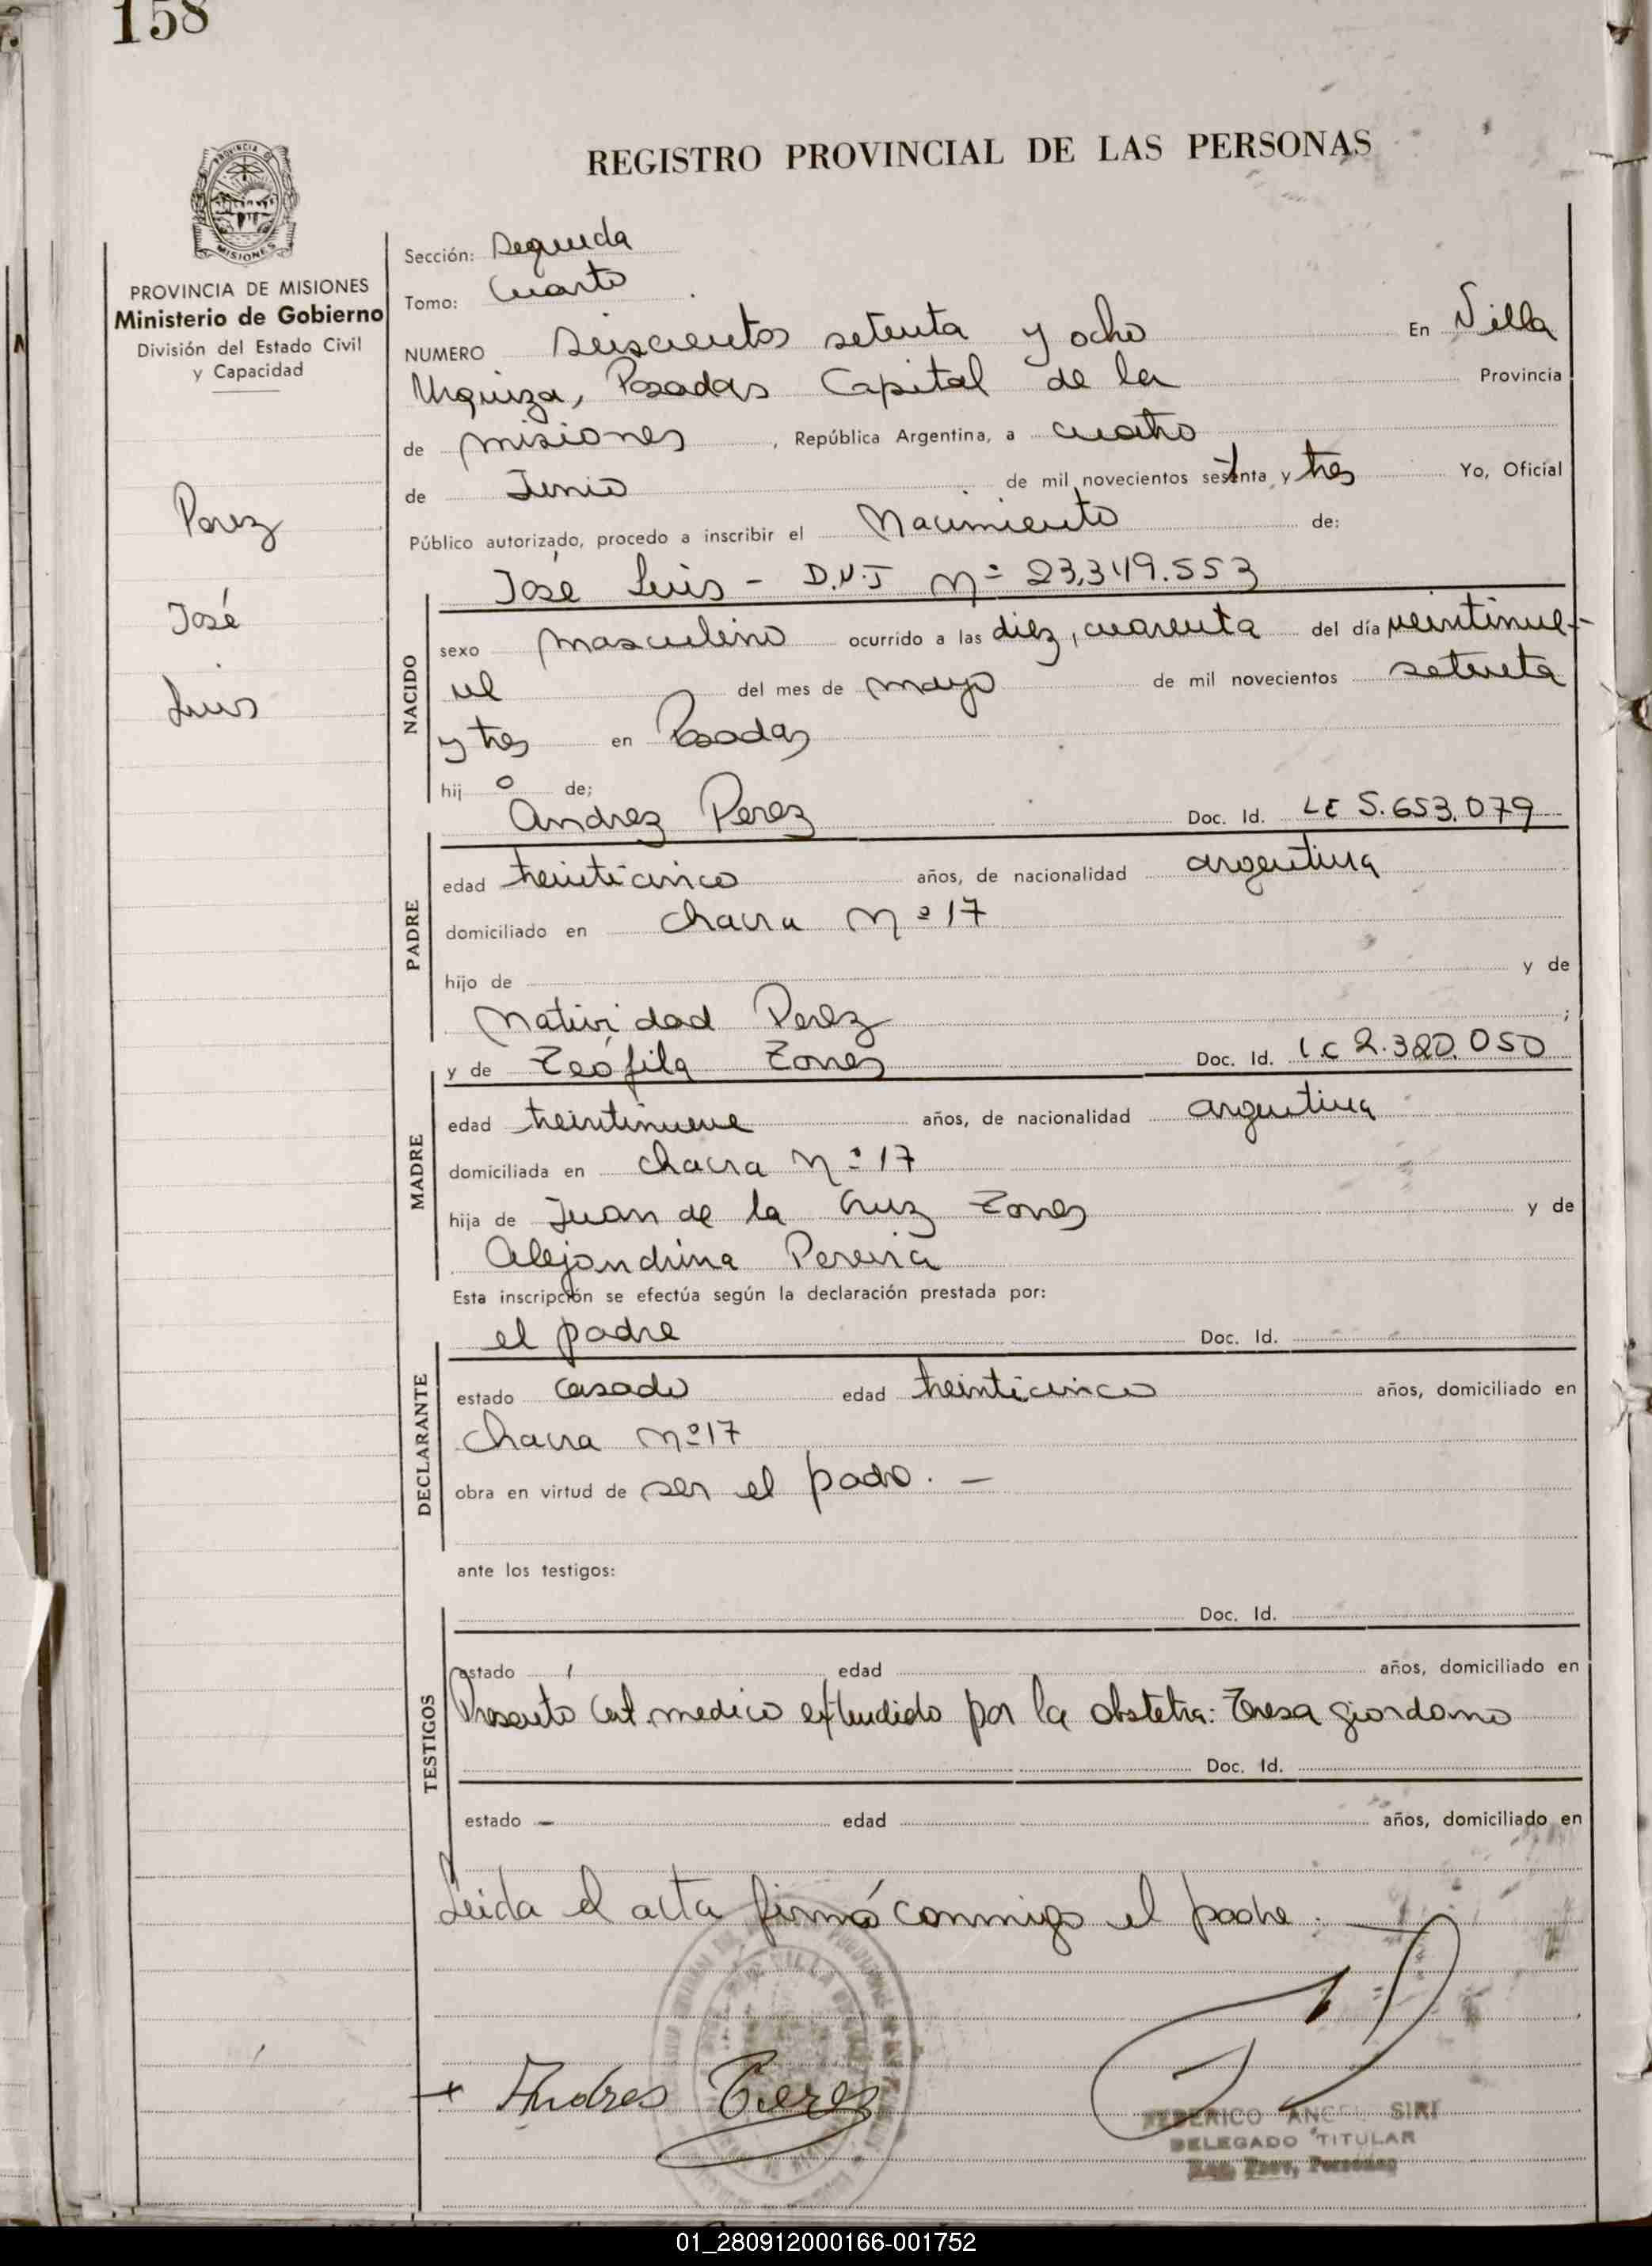 158
REGISTRO PROVINCIAL DE LAS PERSONAS
PROVINCIA DE MISIONES
PROVINCIA DE MISIONES
Ministerio de Gobierno
División del Estado Civil
y Capacidad
Perez
José
Luis
Sección: Segunda
Tomo: Cuarto
NUMERO Seiscientos setenta y ocho En Villa
Urquiza, Posadas Capital de la Provincia
de misiones, República Argentina, a cuatro
de Junio de mil novecientos setenta y tres Yo, Oficial
Público autorizado, procedo a inscribir el Nacimiento de:
José Luis - D.N.I Nº 23,349.553
NACIDO
sexo masculino ocurrido a las diez, cuarenta del día veintinue-
ve del mes de mayo de mil novecientos setenta
y tres en Posadas
hij o de;
Andrez Perez Doc. Id. LE 5.653.079
PADRE
edad treinticinco años, de nacionalidad argentina
domiciliado en chacra Nº 17
hijo de y de
Natividad Perez ;
y de Teófila Torres Doc. Id. L.C 2.320.050
MADRE
edad treintinueve años, de nacionalidad argentina
domiciliada en chacra Nº 17
hija de Juan de la Cruz Torres y de
Alejandrina Pereira
Esta inscripción se efectúa según la declaración prestada por:
el padre Doc. Id.
DECLARANTE
estado casado edad treinticinco años, domiciliado en
Chacra Nº 17
obra en virtud de ser el padre. —
ante los testigos:
Doc. Id.
TESTIGOS
estado edad años, domiciliado en
Presento Cert. medico extendido por la obstetra: Teresa giordano
Doc. Id.
estado - edad años, domiciliado en
Leida el acta firmó conmigo el padre. —
Andres Perez
FEDERICO ANGEL SIRI
DELEGADO TITULAR
Reg. Prov. Personas
01_280912000166-001752